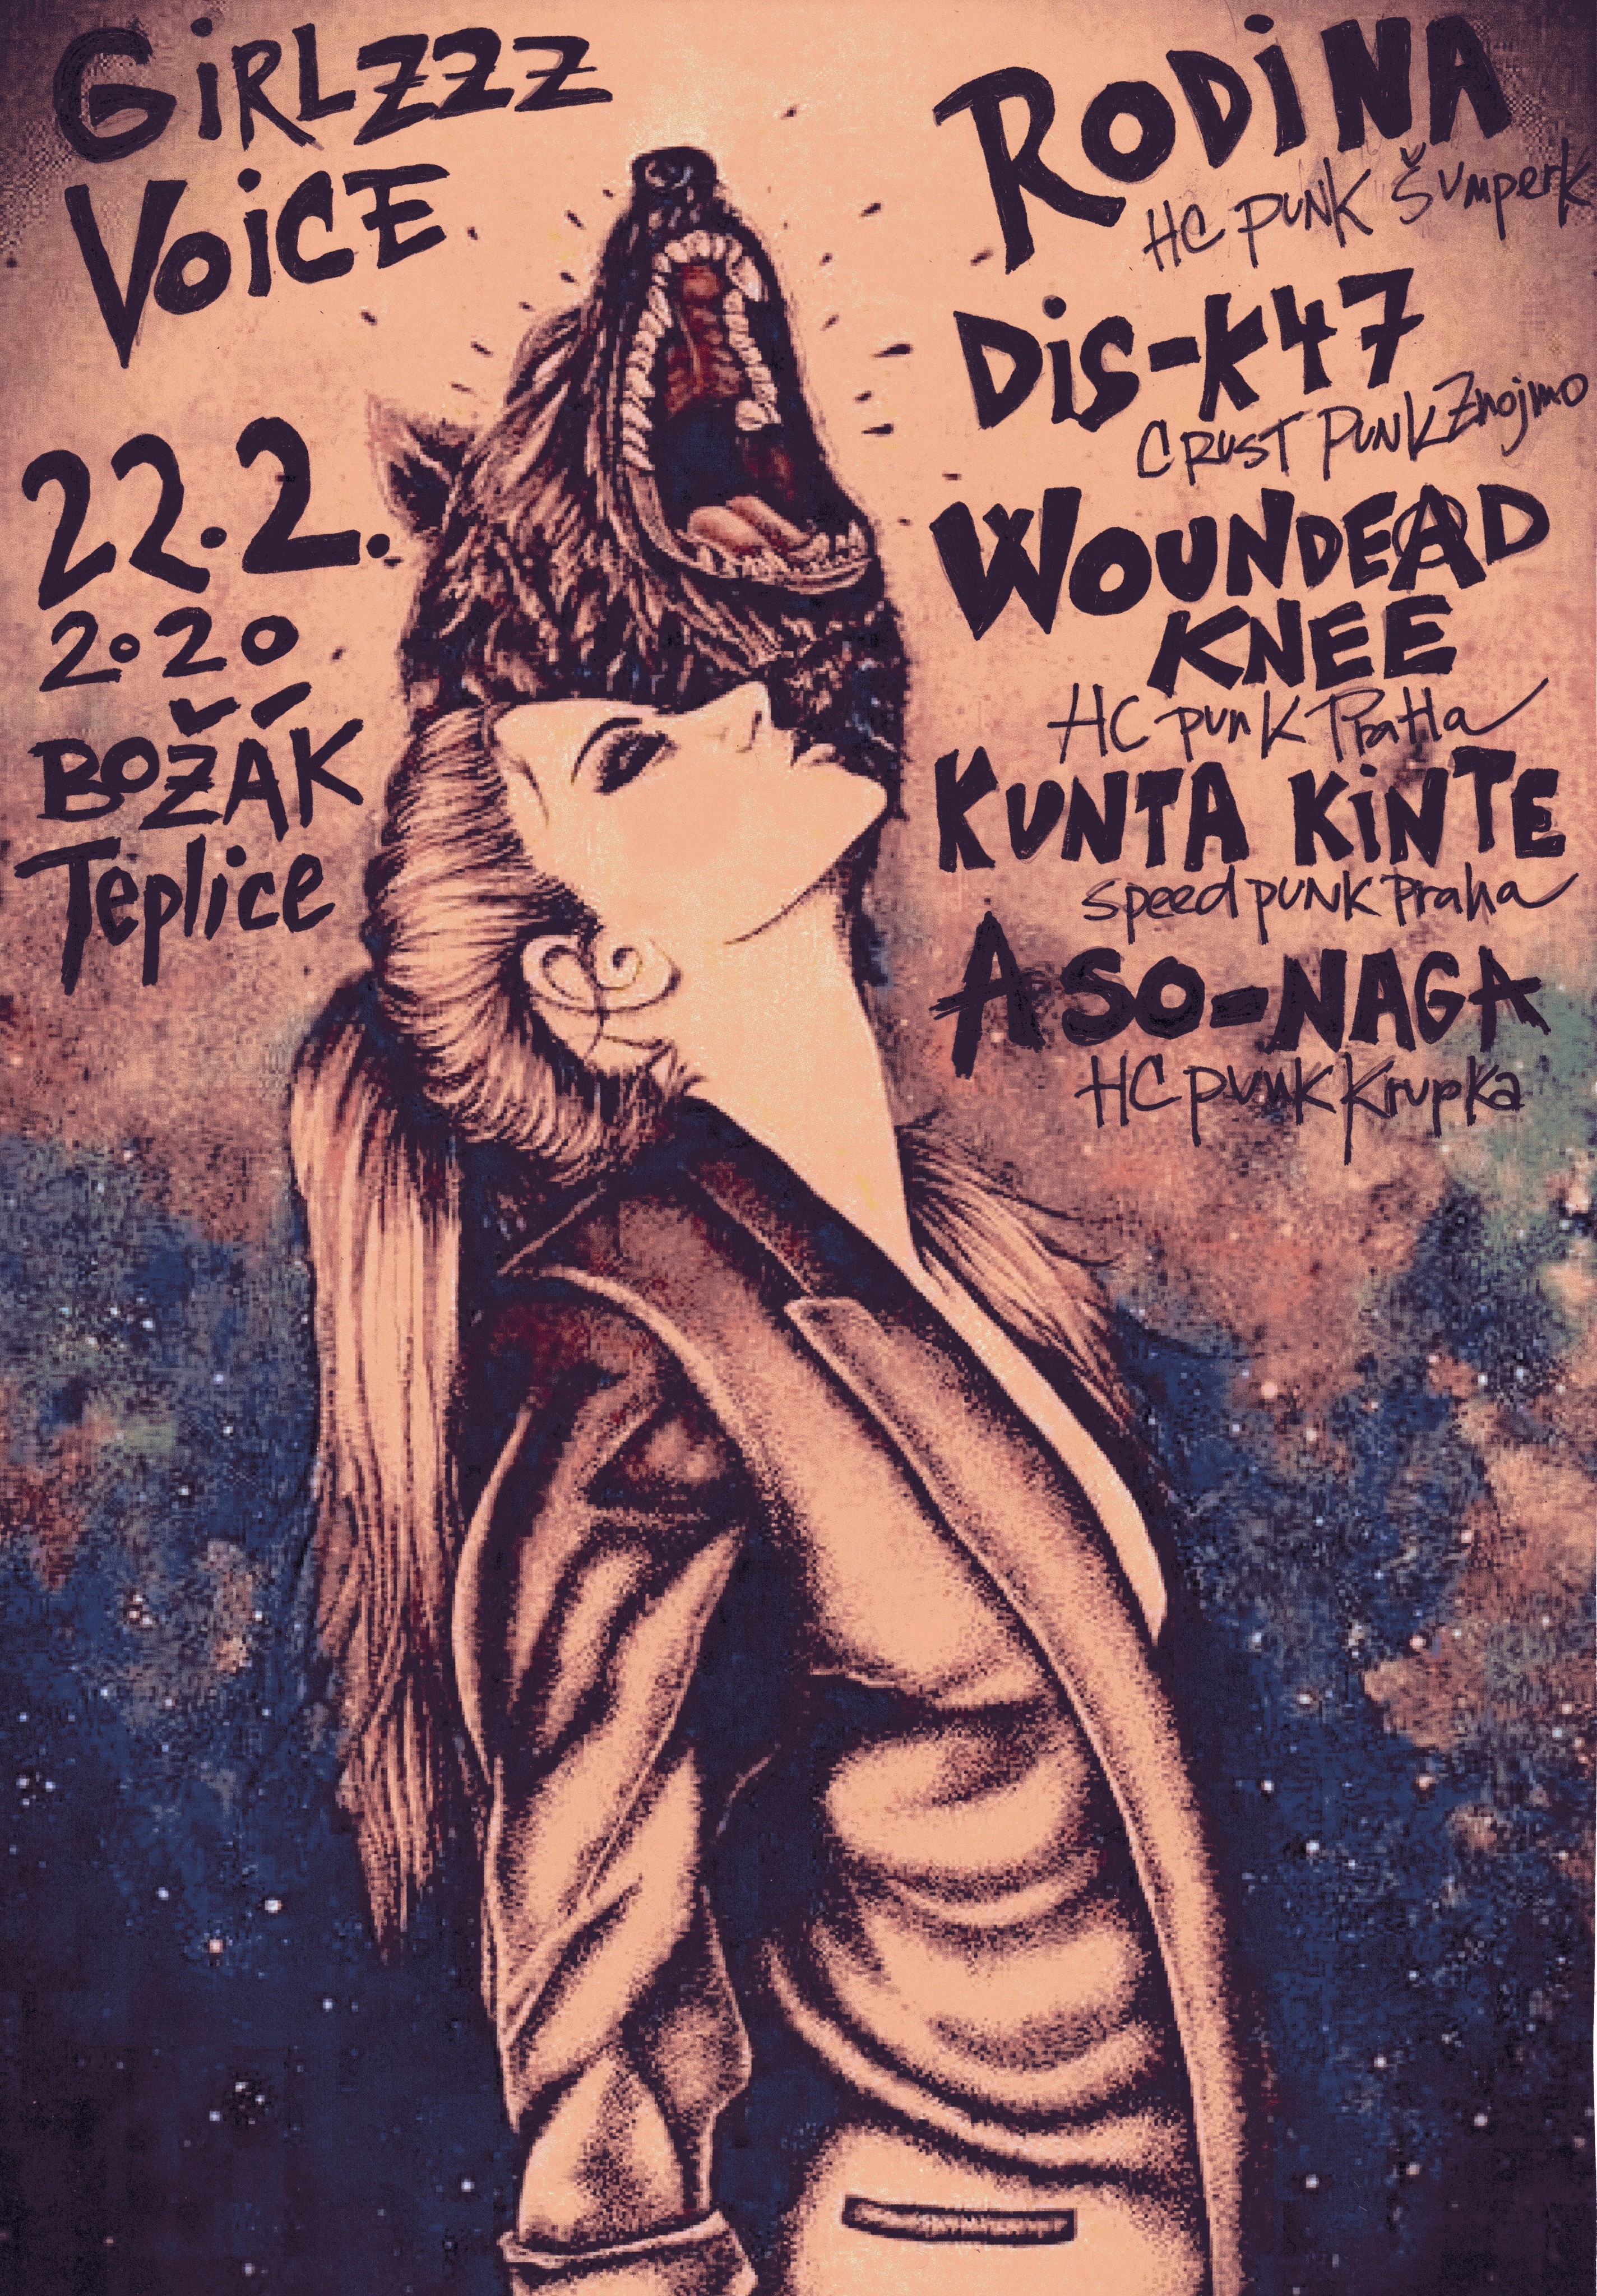 GiRLZZZ
VOiCE
22.2.
2020
BOŽÁK
Teplice
RODiNA
HC PUNK Šumperk
DiS-K47
CRUST PUNK Znojmo
WOUNDEAD
KNEE
HC punk PraHa
KUNTA KiNTE
speed punk Praha
ASO-NAGA
HC punk Krupka